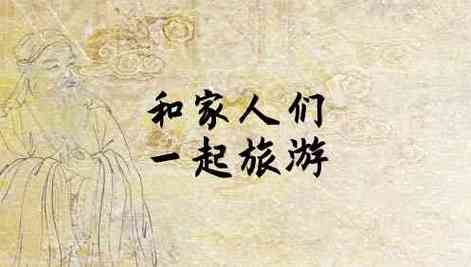 和家人们
一起旅游